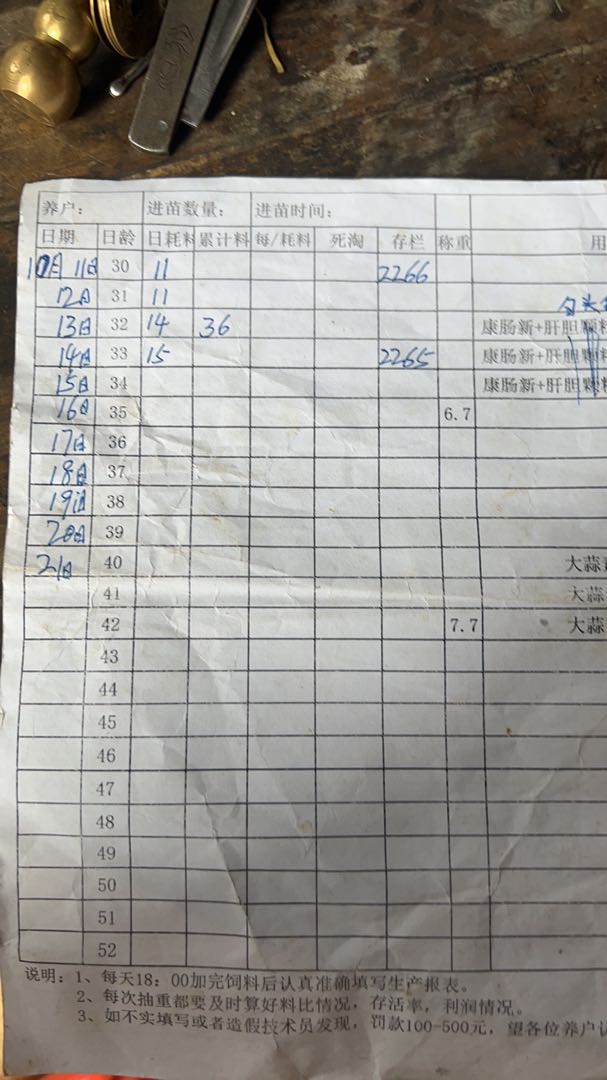 养户： 进苗数量： 进苗时间：
日期 日龄 日耗料 累计料 每/耗料 死淘 存栏 称重 用
10月11日 30 11 2266
12日 31 11
13日 32 14 36 康肠新+肝胆颗粒
14日 33 15 2265 康肠新+肝胆颗粒
15日 34 康肠新+肝胆颗粒
16日 35 6.7
17日 36
18日 37
19日 38
20日 39
21日 40 大蒜
41 大蒜
42 7.7 大蒜
43
44
45
46
47
48
49
50
51
52
说明：1、每天18：00加完饲料后认真准确填写生产报表。
2、每次抽重都要及时算好料比情况，存活率，利润情况。
3、如不实填写或者造假技术员发现，罚款100-500元，望各位养户认